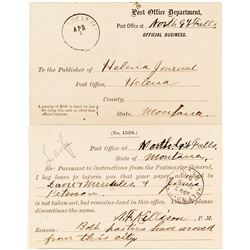 Post Office Department,
Post Office at North Gt Falls,
OFFICIAL BUSINESS.
APR
To the Publisher of Helena Journal
Post Office, Helena
County,
State of Montana
A penalty of $300 is fixed by law for
using this card for other than
official business.
(No. 1528.)
Post Office at North Gt Falls,
State of Montana,
Sir: Pursuant to instructions from the Postmaster General,
I beg leave to inform you that your paper, addressed
to
Peterson
is not taken out, but remains dead in this office. You will please
discontinue the same.
P. M.
Reason: Both parties have moved
from this city